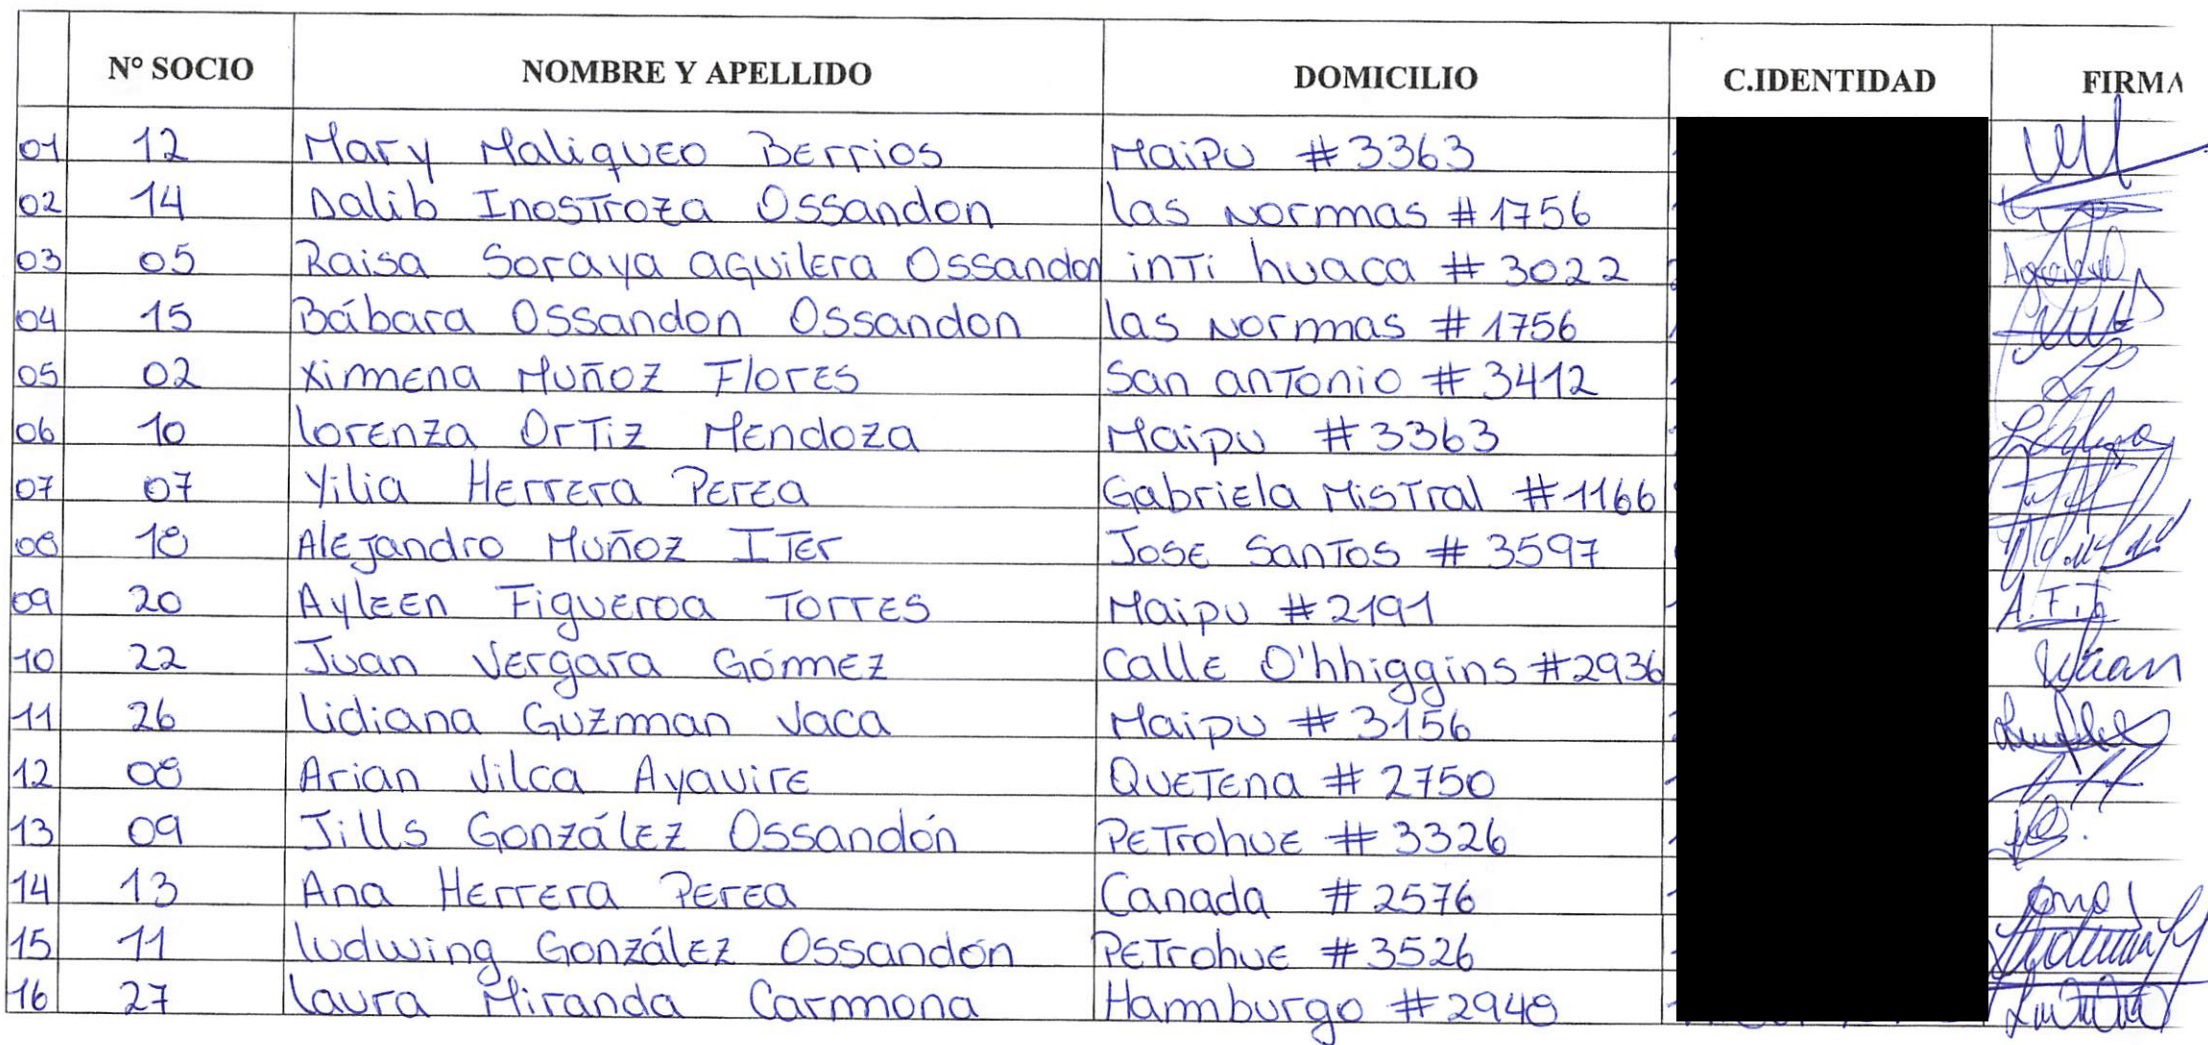 N° SOCIO NOMBRE Y APELLIDO DOMICILIO C.IDENTIDAD FIRMA
01 12 Mary Maliqueo Berrios Maipu #3363
02 14 Dalib Inostroza Ossandon las Normas #1756
03 05 Raisa Soraya aguilera Ossandon inti huaca #3022
04 15 Bábara Ossandon Ossandon las Normas #1756
05 02 Ximena Muñoz Flores San antonio #3412
06 10 lorenza Ortiz Mendoza Maipu #3363
07 07 Yilia Herrera Perea Gabriela Mistral #1166
08 18 Alejandro Muñoz Iter Jose Santos #3597
09 20 Ayleen Figueroa Torres Maipu #2191 A. Fig
10 22 Juan Vergara Gómez Calle O'hhiggins #2936
11 26 lidiana Guzman Vaca Maipu #3156
12 08 Arian Vilca Ayavire Quetena #2750
13 09 Jills González Ossandón Petrohue #3326
14 13 Ana Herrera Perea Canada #2576
15 11 ludwing González Ossandón Petrohue #3526
16 27 laura Miranda Carmona Hamburgo #2948